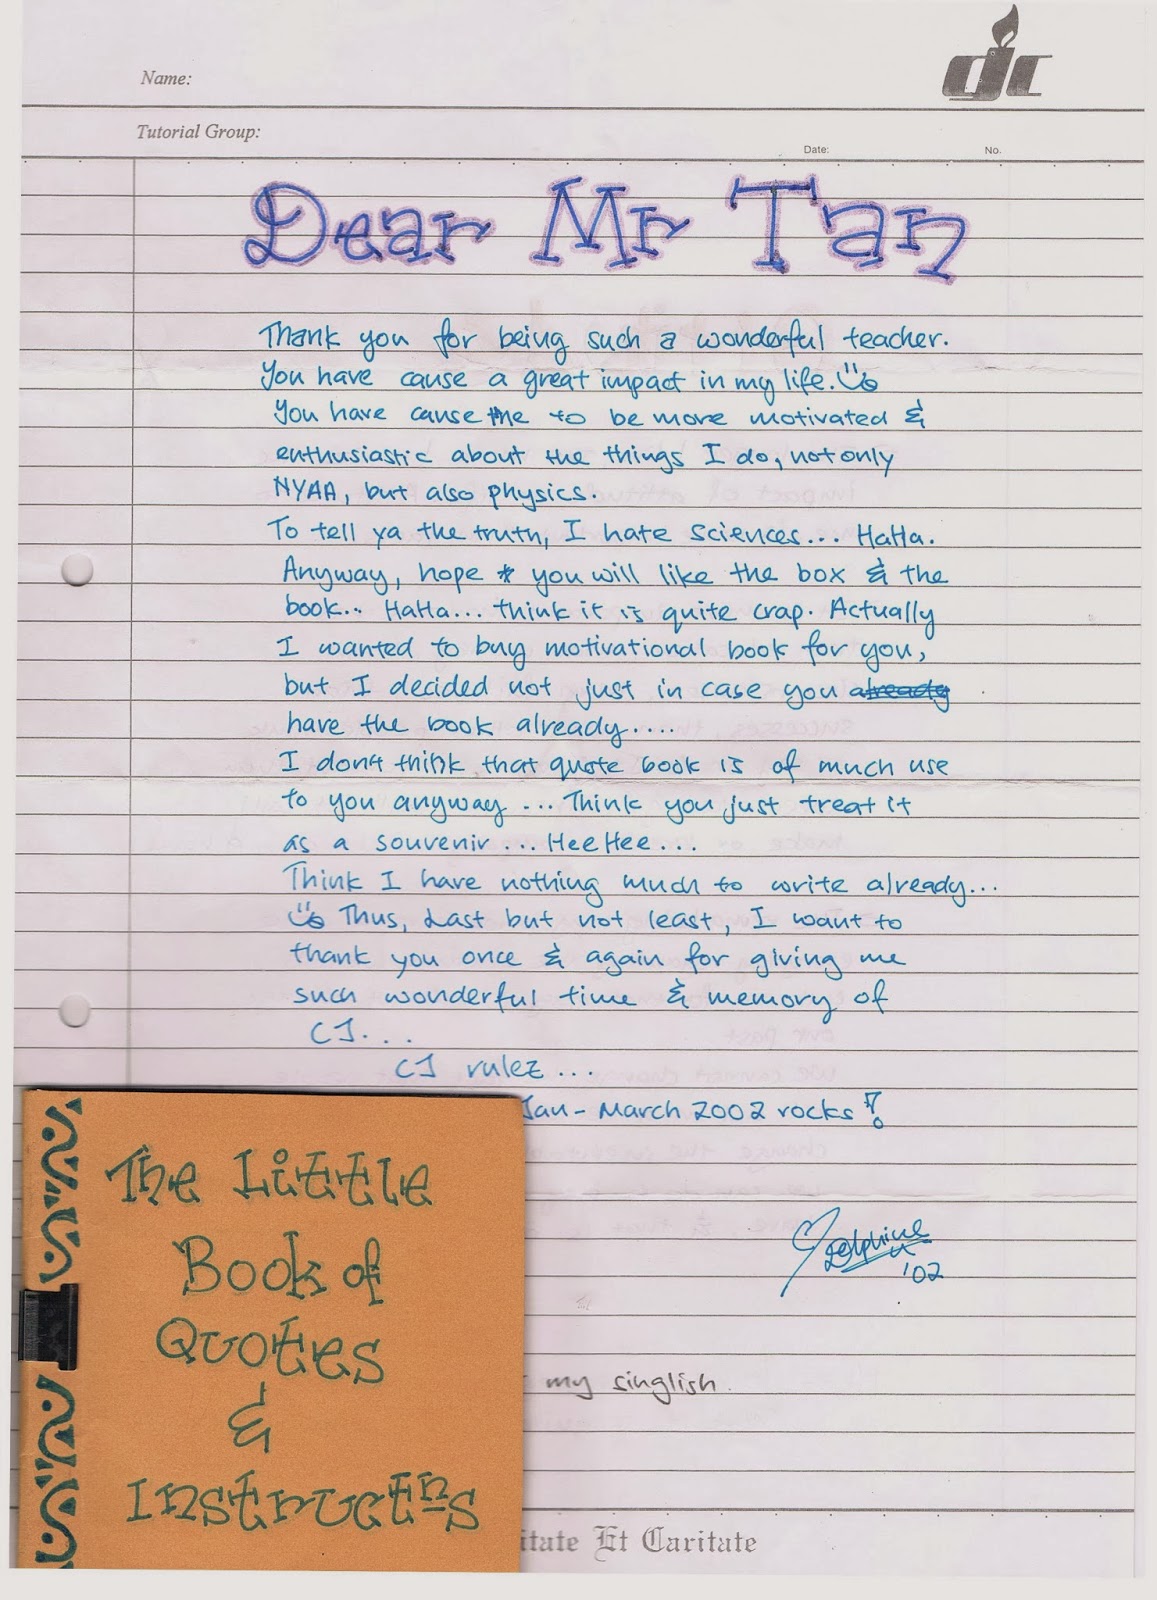 Name:
Tutorial Group:
Date: No.
Dear Mr Tan
Thank you for being such a wonderful teacher.
You have cause a great impact in my life.
You have cause me to be more motivated &
enthusiastic about the things I do, not only
NYAA, but also physics.
To tell ya the truth, I hate sciences... HaHa.
Anyway, hope you will like the box & the
book... HaHa... think it is quite crap. Actually
I wanted to buy motivational book for you,
but I decided not just in case you already
have the book already....
I don't think that quote book is of much use
to you anyway ... Think you just treat it
as a souvenir ... HeeHee...
Think I have nothing much to write already...
Thus, Last but not least, I want to
thank you once & again for giving me
such wonderful time & memory of
CJ...
CJ rulez ...
Jan - March 2002 rocks!
Delphine
'02
my singlish.
itate Et Caritate
The Little
Book of
Quotes
&
Instructns